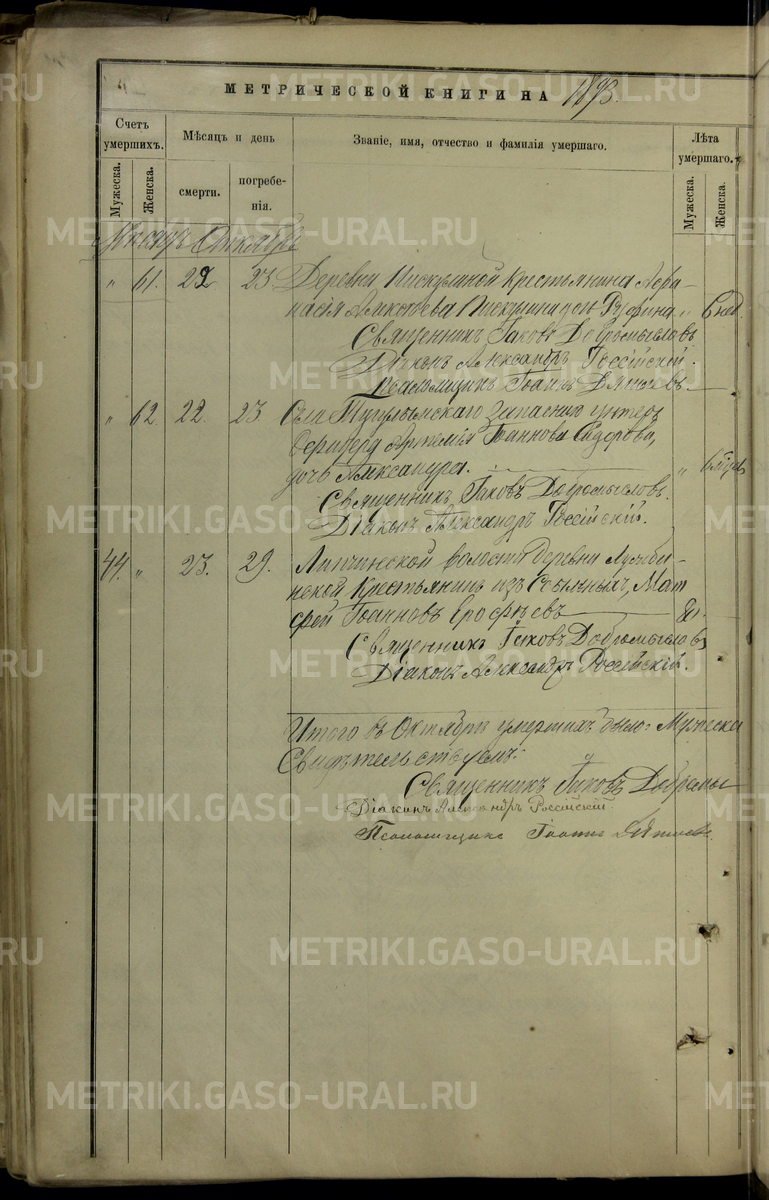 МЕТРИЧЕСКОЙ КНИГИ НА 1893.
Счетъ умершихъ.
Мужеска.
Женска.
Мѣсяцъ и день
смерти.
погребенія.
Званіе, имя, отчество и фамилія умершаго.
Лѣта умершаго.
Мужеска.
Женска.
Мѣсяцъ Октябрь
„ 61. 22 23 Деревни Пискулиной крестьянина Афа-
насія Пискулина дочь Руфина „ 6 нед.
Священникъ Іаковъ Добромысловъ
Діаконъ Александръ Россійскій.
Псаломщикъ Іоаннъ
„ 62. 22. 23 Села Тугулымскаго запаснаго унтеръ
офицера Артемія Іоаннова Сидорова,
дочь Александра. „ 6 мѣсяц
Священникъ Іаковъ Добромысловъ.
Діаконъ Александръ Россійскій.
44. „ 23. 29. Липчинской волости деревни
крестьянинъ изъ ссыльныхъ, Мат
фей Іоанновъ Ерофѣевъ
Священникъ Іаковъ Добромысловъ
Діаконъ Александръ Россійскій.
Итого въ Октябрѣ умершихъ было: Мужеска
Свидѣтельствуемъ:
Священникъ Іаковъ Добромы
Діаконъ Александръ Россійскій.
Псаломщикъ Іоаннъ
METRIKI.GASO-URAL.RU